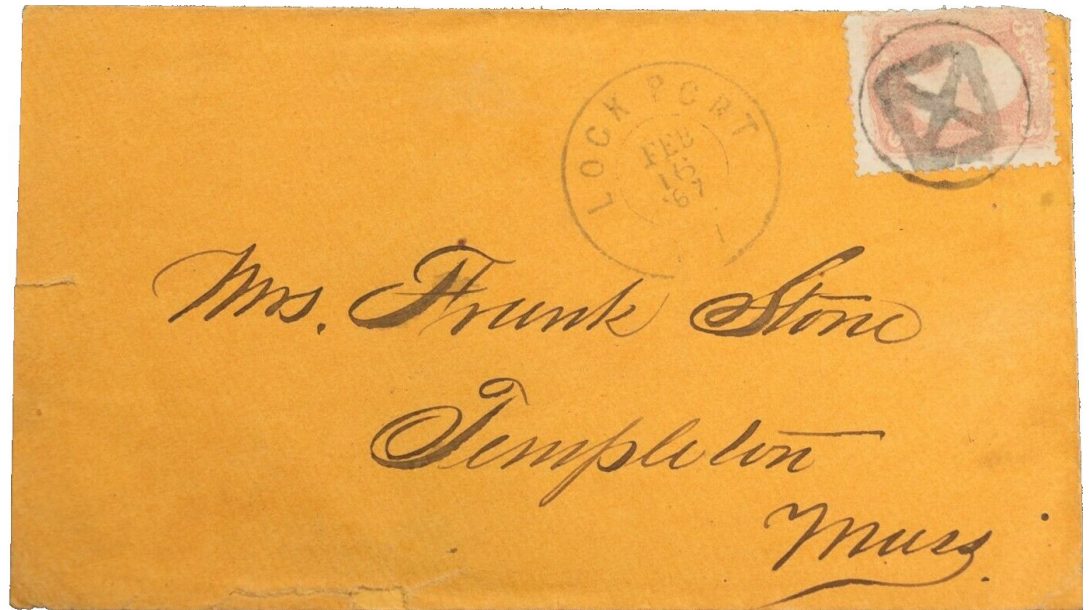 LOCKPORT
FEB
16
'67
3 3
Mrs. Frank Stone
Templeton
Mass.